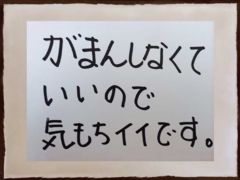 がまんしなくて
いいので
気もちイイです。